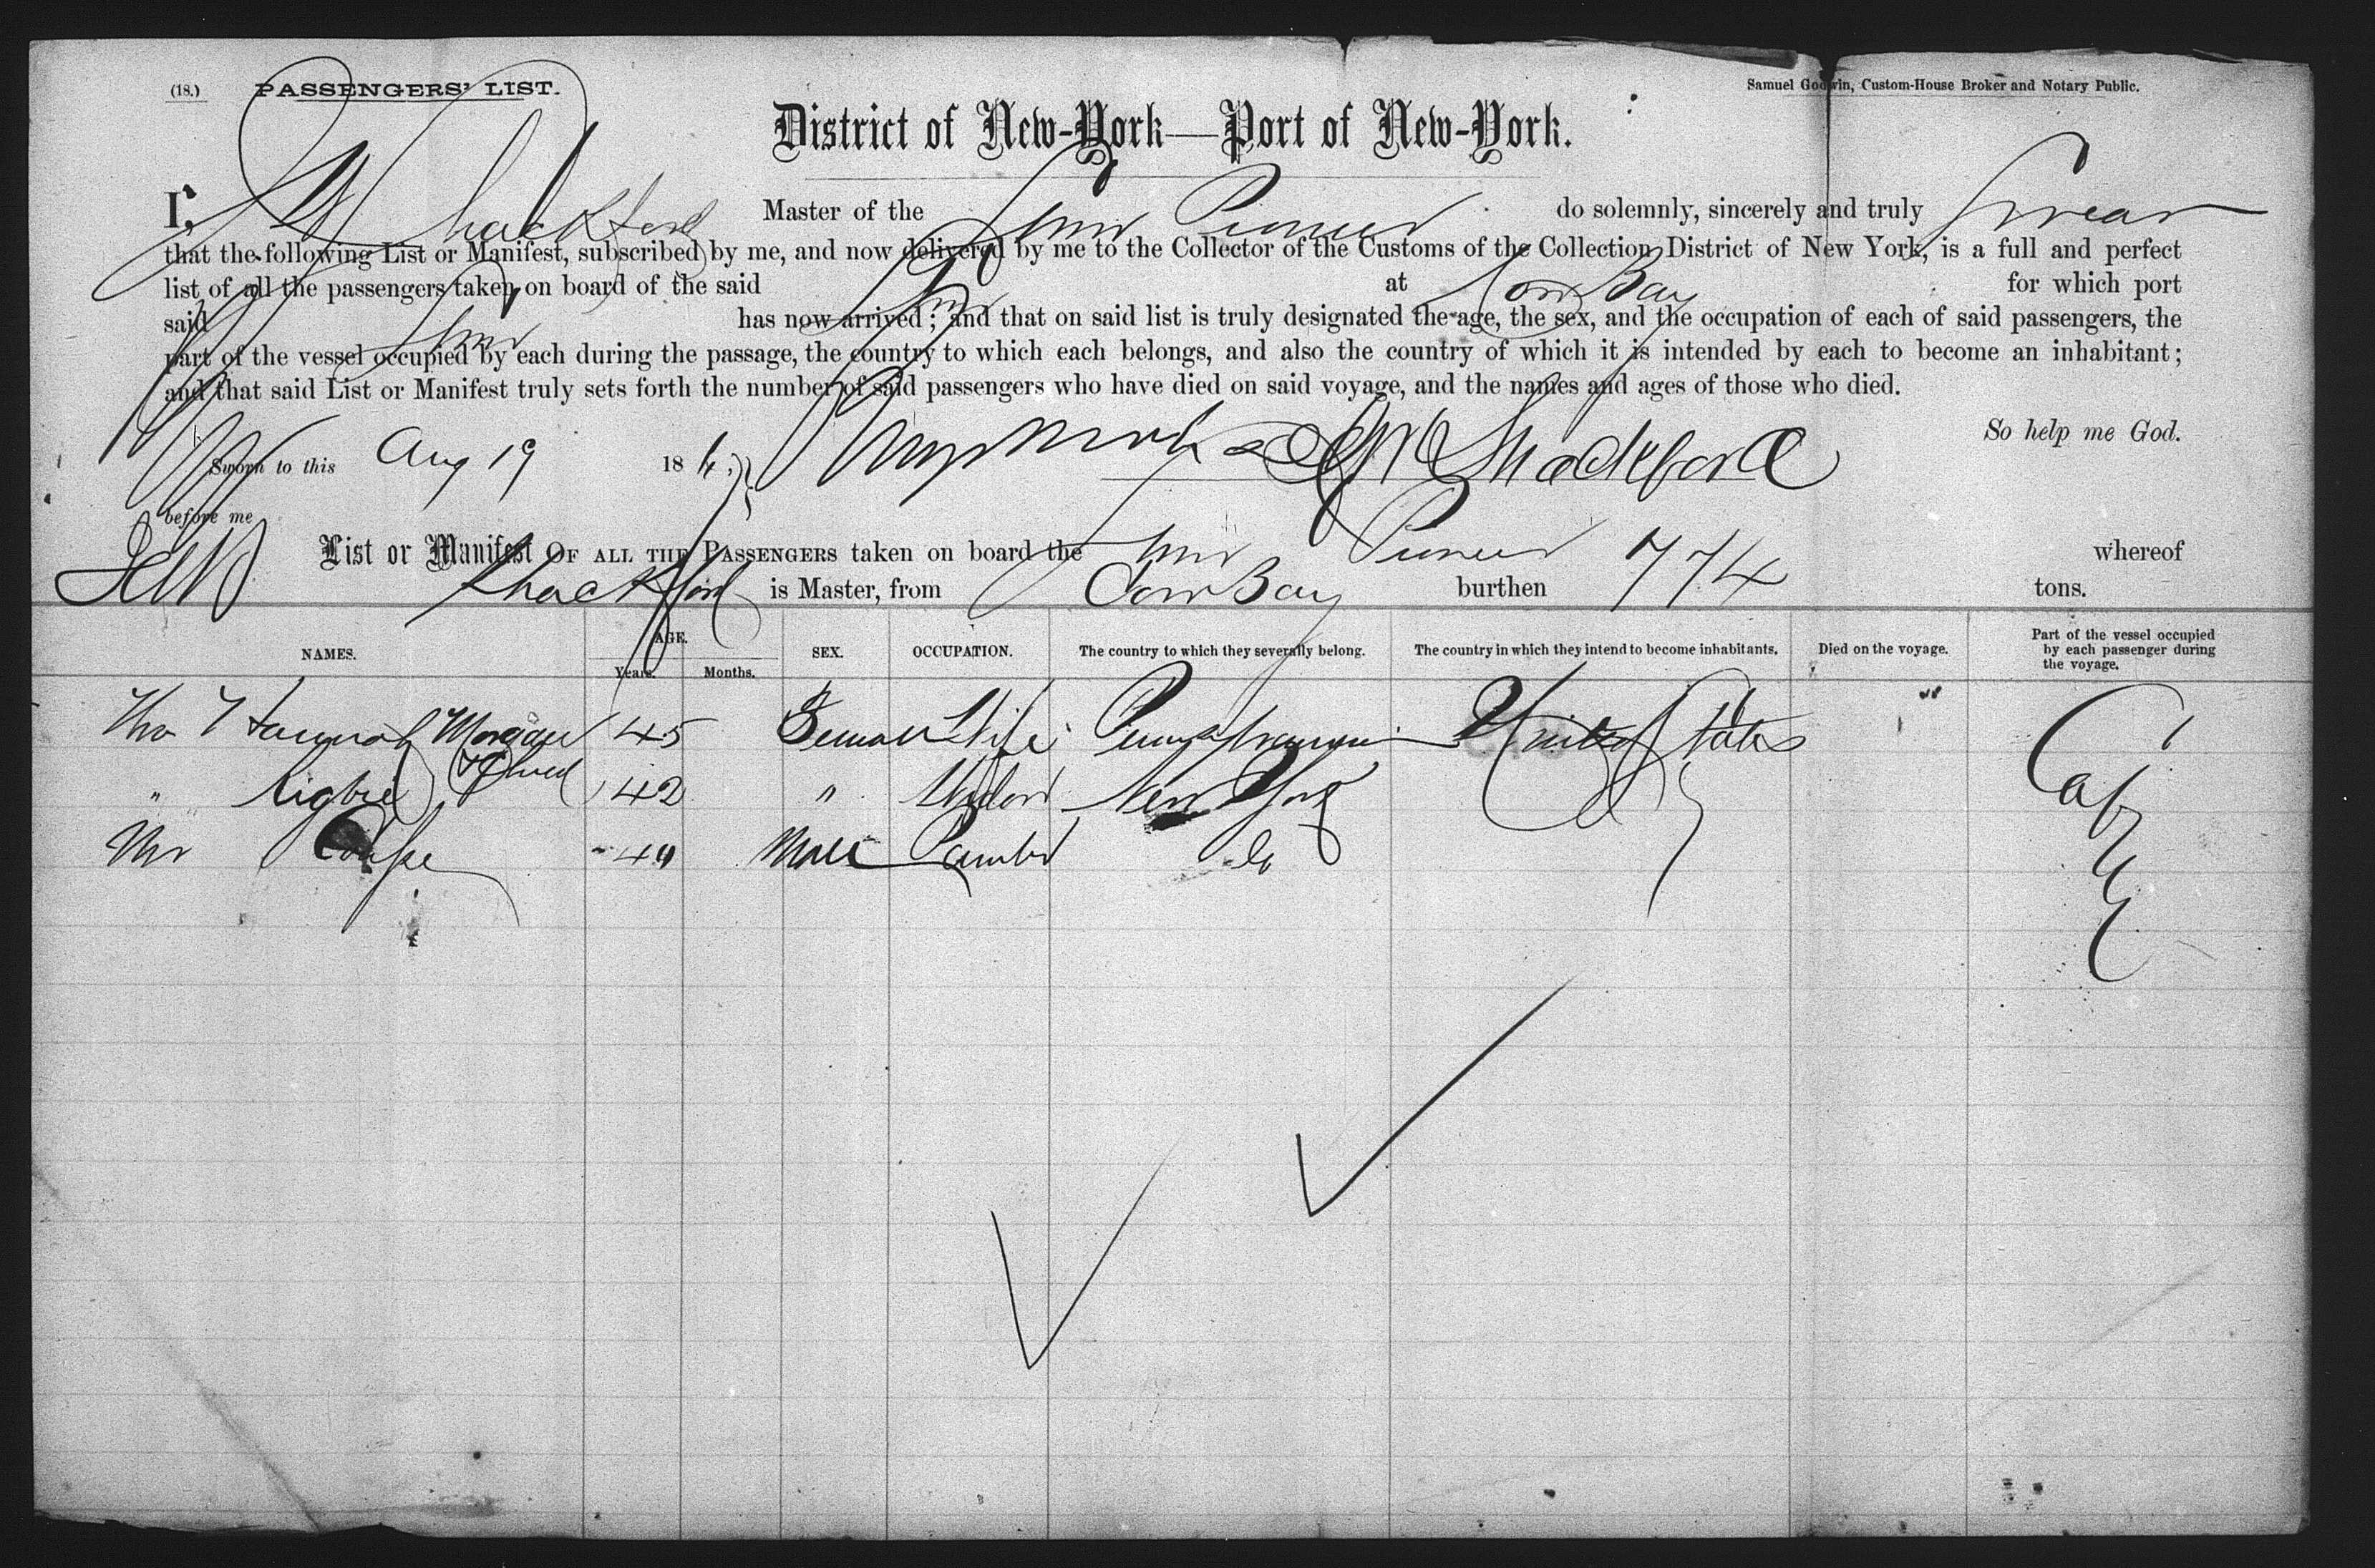 (18.) PASSENGERS' LIST.
Samuel Godwin, Custom-House Broker and Notary Public.
District of New-York—Port of New-York.
I, Shackford Master of the Pioneer do solemnly, sincerely and truly swear
that the following List or Manifest, subscribed by me, and now delivered by me to the Collector of the Customs of the Collection District of New York, is a full and perfect
list of all the passengers taken on board of the said at Cow Bay for which port
said has now arrived; and that on said list is truly designated the age, the sex, and the occupation of each of said passengers, the
part of the vessel occupied by each during the passage, the country to which each belongs, and also the country of which it is intended by each to become an inhabitant;
and that said List or Manifest truly sets forth the number of said passengers who have died on said voyage, and the names and ages of those who died.
So help me God.
Sworn to this Aug 19 18 Shackford
before me
List or Manifest OF ALL THE PASSENGERS taken on board the Pioneer whereof
Shackford is Master, from Cow Bay burthen 774 tons.
NAMES. AGE. Years. Months. SEX. OCCUPATION. The country to which they severally belong. The country in which they intend to become inhabitants. Died on the voyage. Part of the vessel occupied by each passenger during the voyage.
Hannah Morgan 45 Female Wife Pennsylvania United States
" 42 " New York
Mr Male do